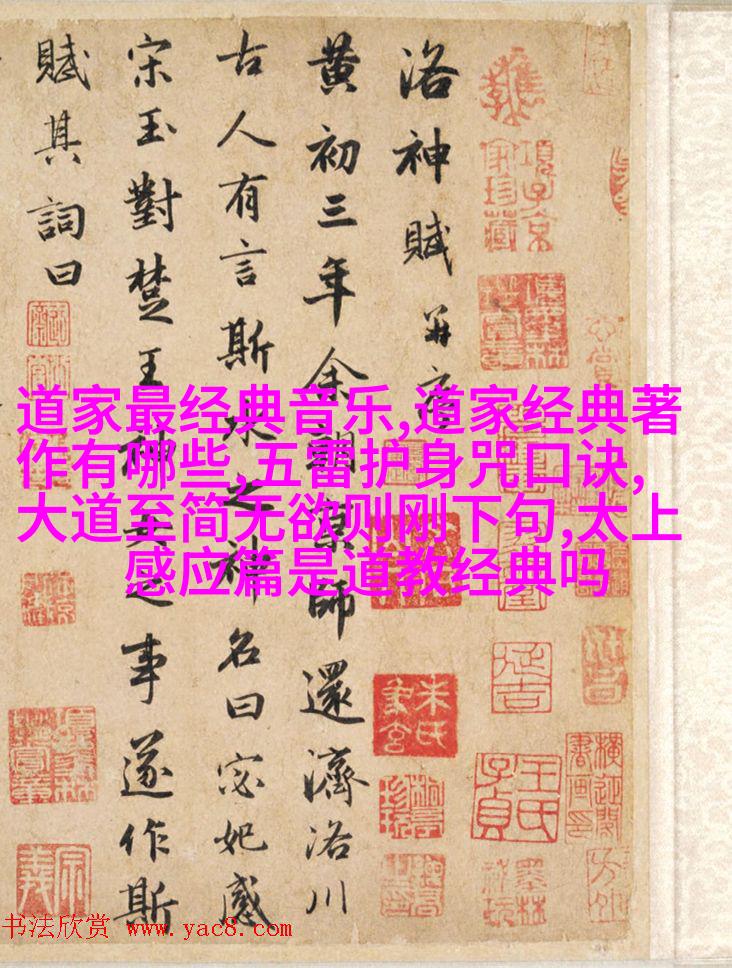 洛神賦 并序
黄初三年余朝京師還濟洛川
古人有言斯水之神名曰宓妃感
宋玉對楚王神女之事遂作斯
賦其詞曰
道家最经典音乐,道家经典著
作有哪些,五雷护身咒口诀,
大道至简无欲则刚下句,太上
感应篇是道教经典吗
項子京家珍藏
墨林秘玩
书法欣赏 www.yac8.com